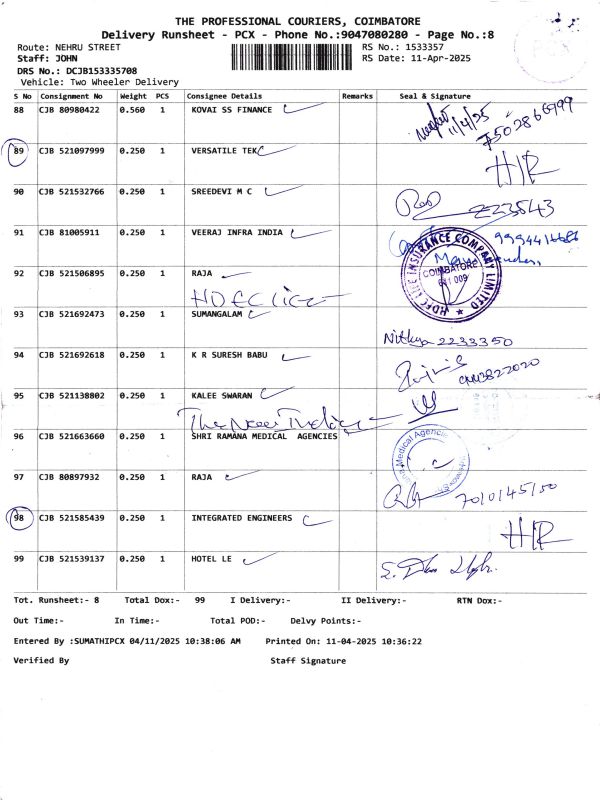 THE PROFESSIONAL COURIERS, COIMBATORE
Delivery Runsheet - PCX - Phone No.:9047080280 - Page No.:8
Route: NEHRU STREET
RS No.: 1533357
Staff: JOHN
RS Date: 11-Apr-2025
DRS No.: DCJB153335708
Vehicle: Two Wheeler Delivery
PCX
S No Consignment No Weight PCS Consignee Details Remarks Seal & Signature
88 CJB 80980422 0.560 1 KOVAI SS FINANCE
11/4/25
89 CJB 521097999 0.250 1 VERSATILE TEK H/R
90 CJB 521532766 0.250 1 SREEDEVI M C 223543
91 CJB 81005911 0.250 1 VEERAJ INFRA INDIA
HDFC LIFE INSURANCE COMPANY LIMITED
COIMBATORE
641 009
92 CJB 521506895 0.250 1 RAJA
HDFC Life
93 CJB 521692473 0.250 1 SUMANGALAM
Nithya 2233350
94 CJB 521692618 0.250 1 K R SURESH BABU
95 CJB 521138802 0.250 1 KALEE SWARAN
The New India
96 CJB 521663660 0.250 1 SHRI RAMANA MEDICAL AGENCIES
97 CJB 80897932 0.250 1 RAJA
98 CJB 521585439 0.250 1 INTEGRATED ENGINEERS H/R
99 CJB 521539137 0.250 1 HOTEL LE
Tot. Runsheet:- 8 Total Dox:- 99 I Delivery:- II Delivery:- RTN Dox:-
Out Time:- In Time:- Total POD:- Delvy Points:-
Entered By :SUMATHIPCX 04/11/2025 10:38:06 AM Printed On: 11-04-2025 10:36:22
Verified By Staff Signature